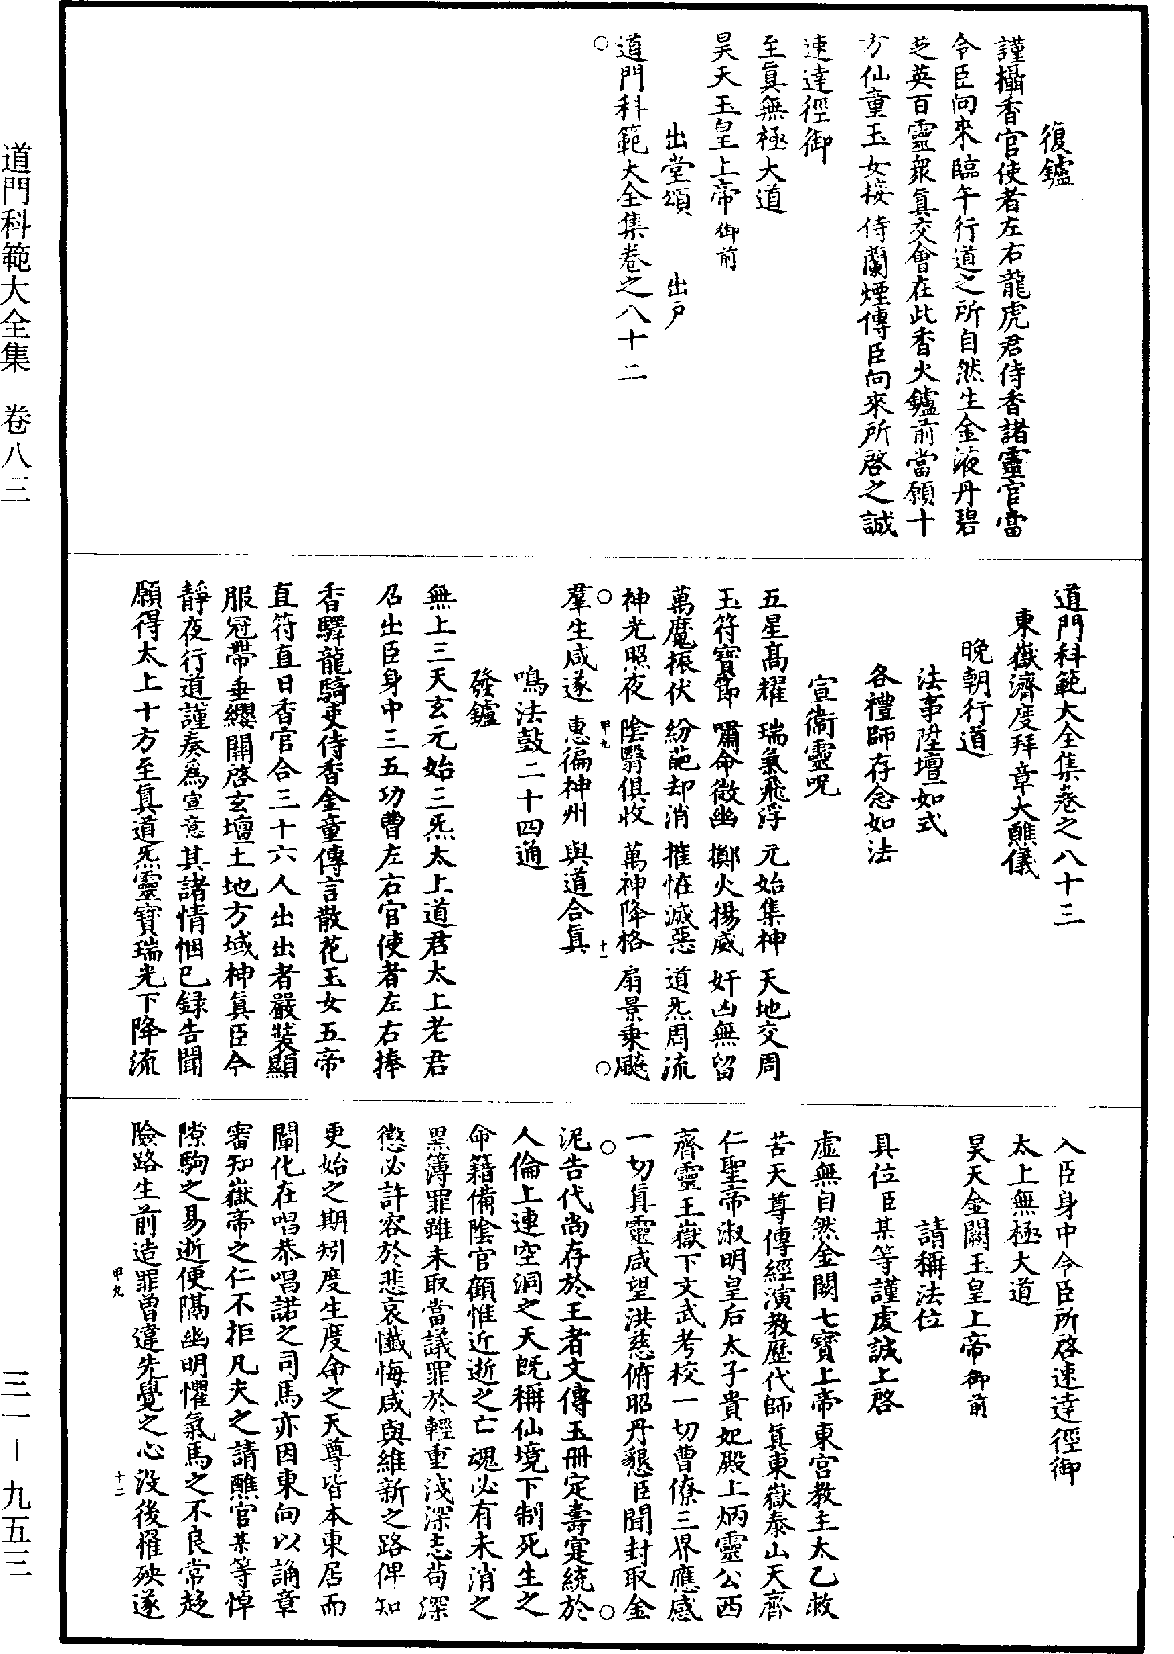 復鑪
謹攝香官使者左右龍虎君侍香諸靈官當
令臣向來臨午行道之所自然生金液丹碧
芝英百靈衆真交會在此香火鑪前當願十
方仙童玉女接侍蘭煙傳臣向來所啓之誠
速達徑御
至真無極大道
昊天玉皇上帝御前
出堂頌　出戶
道門科範大全集卷之八十二
道門科範大全集卷之八十三
東嶽濟度拜章大醮儀
晚朝行道
法事陞壇如式
各禮師存念如法
宣衞靈呪
五星高耀　瑞氣飛浮　元始集神　天地交周
玉符寶節　嘯命徵幽　擲火揚威　奸凶無留
萬魔振伏　紛葩却消　摧恠滅惡　道炁周流
神光照夜　陰翳俱收　萬神降格　扇景乗飈
羣生咸遂　惠徧神州　與道合真
甲九　十一
鳴法鼓二十四通
發鑪
無上三天玄元始三炁太上道君太上老君
召出臣身中三五功曹左右官使者左右捧
香驛龍騎吏侍香金童傳言散花玉女五帝
直符直日香官合三十六人出出者嚴裝顯
服冠帶垂纓關啓玄壇土地方域神真臣今
靜夜行道謹奏爲宣意其諸情悃已録告聞
願得太上十方至真道炁靈寶瑞光下降流
入臣身中令臣所啓速達徑御
太上無極大道
昊天金闕玉皇上帝御前
請稱法位
具位臣某等謹虔誠上啓
虛無自然金闕七寶上帝東宮教主太乙救
苦天尊傳經演教歷代師真東嶽泰山天齊
仁聖帝淑明皇后太子貴妃殿上炳靈公西
齊靈王嶽下文武考校一切曹僚三界應感
一切真靈咸望洪慈俯昭丹懇臣聞封取金
泥告代尚存於王者文傳玉冊定壽寔統於
人倫上連空洞之天旣稱仙境下制死生之
命籍備陰官顧惟近逝之亡魂必有未消之
黑簿罪雖未取當議罪於輕重淺深志苟深
懲必許容於悲哀懺悔咸與維新之路俾知
更始之期矧度生度命之天尊皆本東居而
闡化在唱恭唱諾之司馬亦因東向以誦章
審知嶽帝之仁不拒凡夫之請醮官某等悼
隙駒之易逝便隔幽明懼氣馬之不良常趍
險路生前造罪曽違先覺之心没後罹殃遂
甲九　十二
道門科範大全集　卷八三
三一—九五三